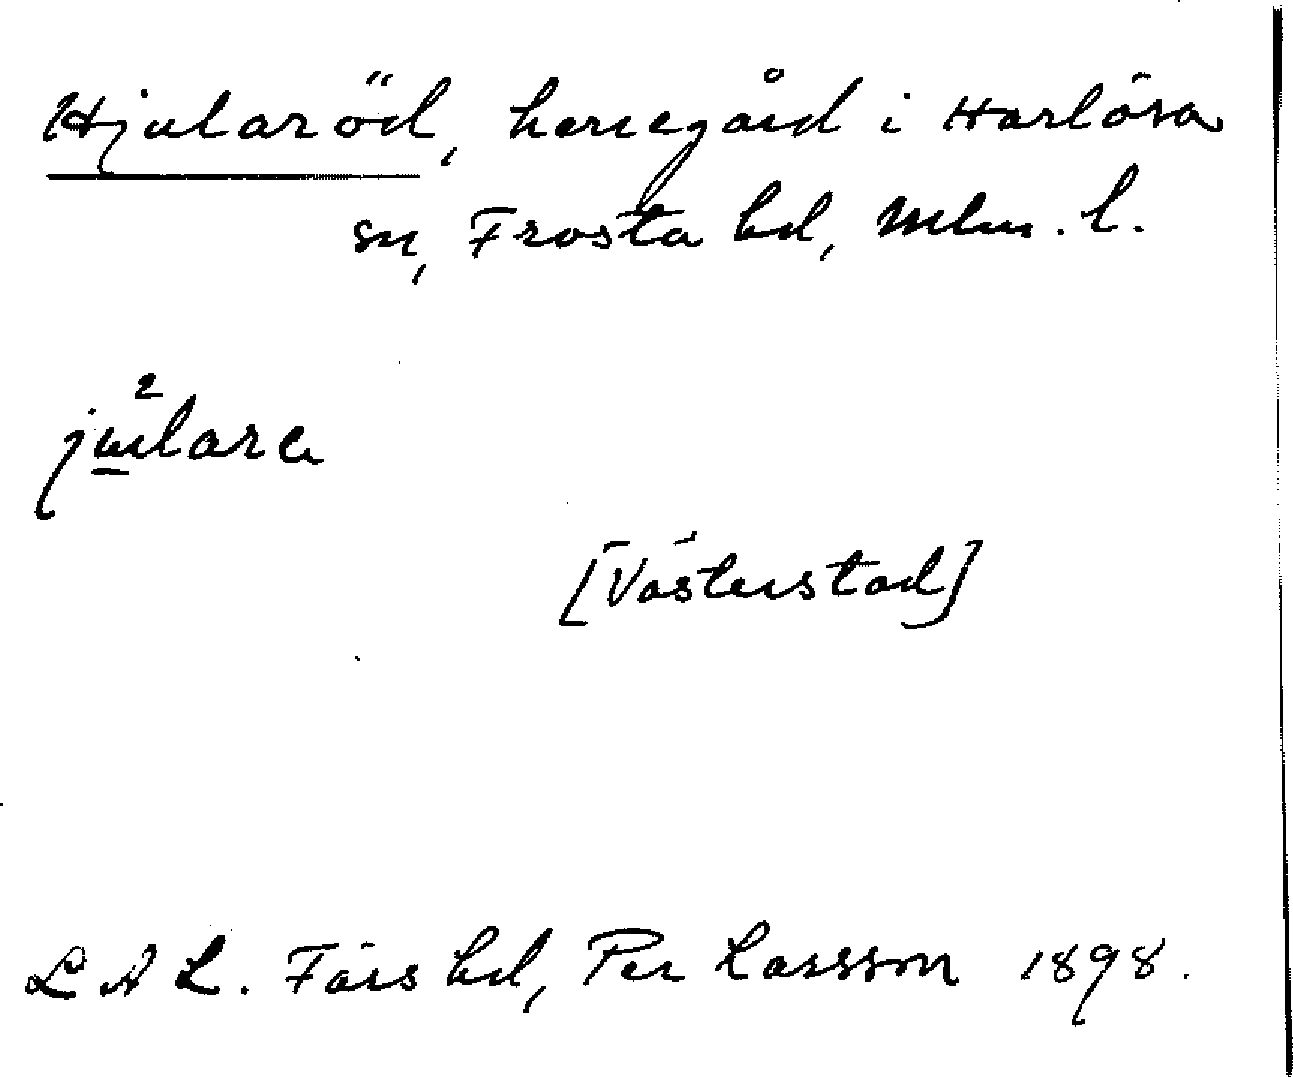 Hjularöd, herregård i Harlösa
sn, Frosta hd, Mlm. l.
ju̲²lara
[Västerstad]
LAL. Färs hd, Per Larsson 1898.